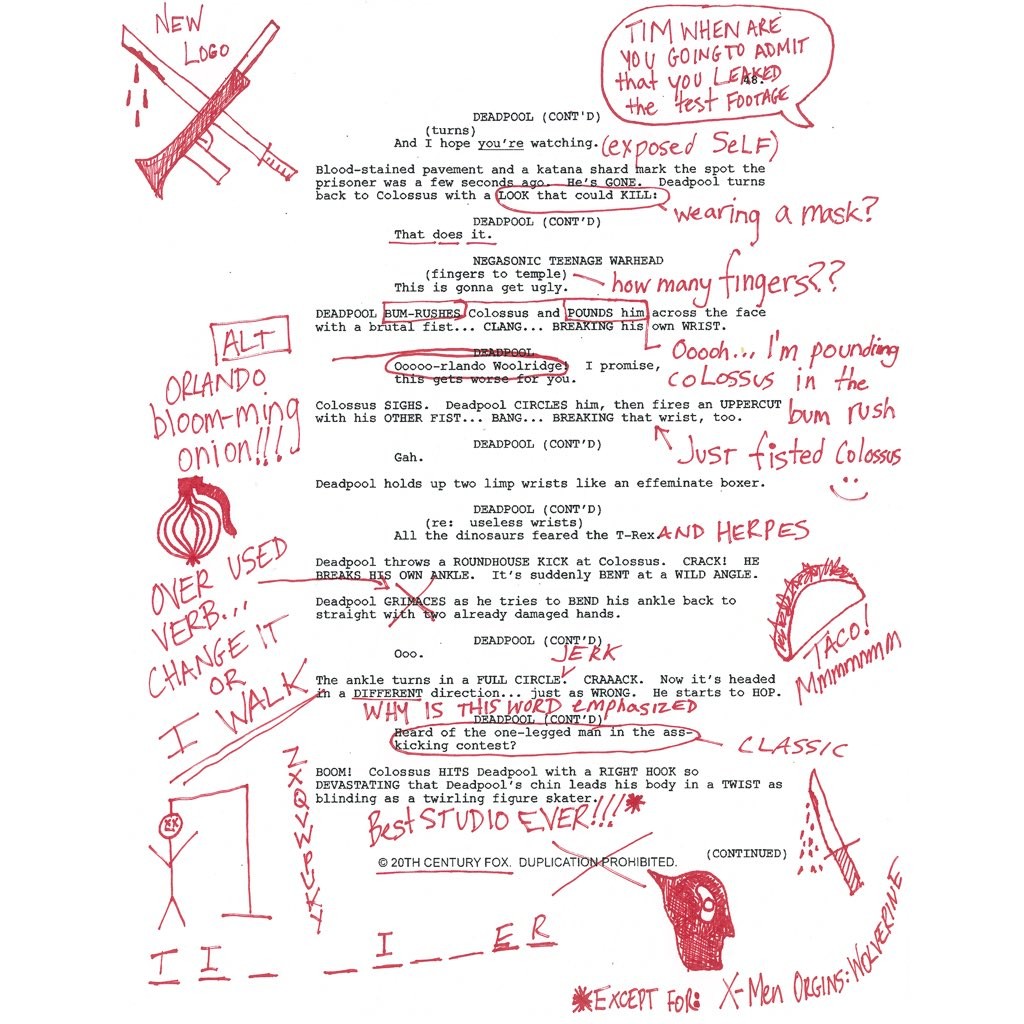 NEW
LOGO
TIM WHEN ARE
YOU GOING TO ADMIT
that you LEAKED
the test FOOTAGE
48.
DEADPOOL (CONT'D)
(turns)
And I hope you're watching. (exposed SeLF)
Blood-stained pavement and a katana shard mark the spot the
prisoner was a few seconds ago. He's GONE. Deadpool turns
back to Colossus with a LOOK that could KILL:
wearing a mask?
DEADPOOL (CONT'D)
That does it.
NEGASONIC TEENAGE WARHEAD
(fingers to temple)
how many fingers??
This is gonna get ugly.
DEADPOOL BUM-RUSHES Colossus and POUNDS him across the face
with a brutal fist... CLANG... BREAKING his own WRIST.
ALT
ORLANDO
bloom-ming
onion!!!
DEADPOOL
Ooooo-rlando Woolridge! I promise,
this gets worse for you.
Ooooh... I'm pounding
coLossus in the
bum rush
Colossus SIGHS. Deadpool CIRCLES him, then fires an UPPERCUT
with his OTHER FIST... BANG... BREAKING that wrist, too.
Just fisted Colossus
DEADPOOL (CONT'D)
Gah.
Deadpool holds up two limp wrists like an effeminate boxer.
DEADPOOL (CONT'D)
(re: useless wrists)
All the dinosaurs feared the T-Rex. AND HERPES
OVER USED
VERB...
CHANGE IT
OR
I WALK
Deadpool throws a ROUNDHOUSE KICK at Colossus. CRACK! HE
BREAKS HIS OWN ANKLE. It's suddenly BENT at a WILD ANGLE.
Deadpool GRIMACES as he tries to BEND his ankle back to
straight with two already damaged hands.
TACO!
Mmmmmmm
DEADPOOL (CONT'D)
Ooo.
JERK
The ankle turns in a FULL CIRCLE. CRAAACK. Now it's headed
in a DIFFERENT direction... just as WRONG. He starts to HOP.
WHY IS THIS WORD EMPHASIZED
DEADPOOL (CONT'D)
Heard of the one-legged man in the ass-
kicking contest?
CLASSIC
BOOM! Colossus HITS Deadpool with a RIGHT HOOK so
DEVASTATING that Deadpool's chin leads his body in a TWIST as
blinding as a twirling figure skater.
Best STUDIO EVER!!!*
(CONTINUED)
© 20TH CENTURY FOX. DUPLICATION PROHIBITED.
Z
X
Q
V
W
P
U
K
Y
T I _ _ I _ _ E R
*EXCEPT FOR: X-Men ORGINS: WOLVERINE